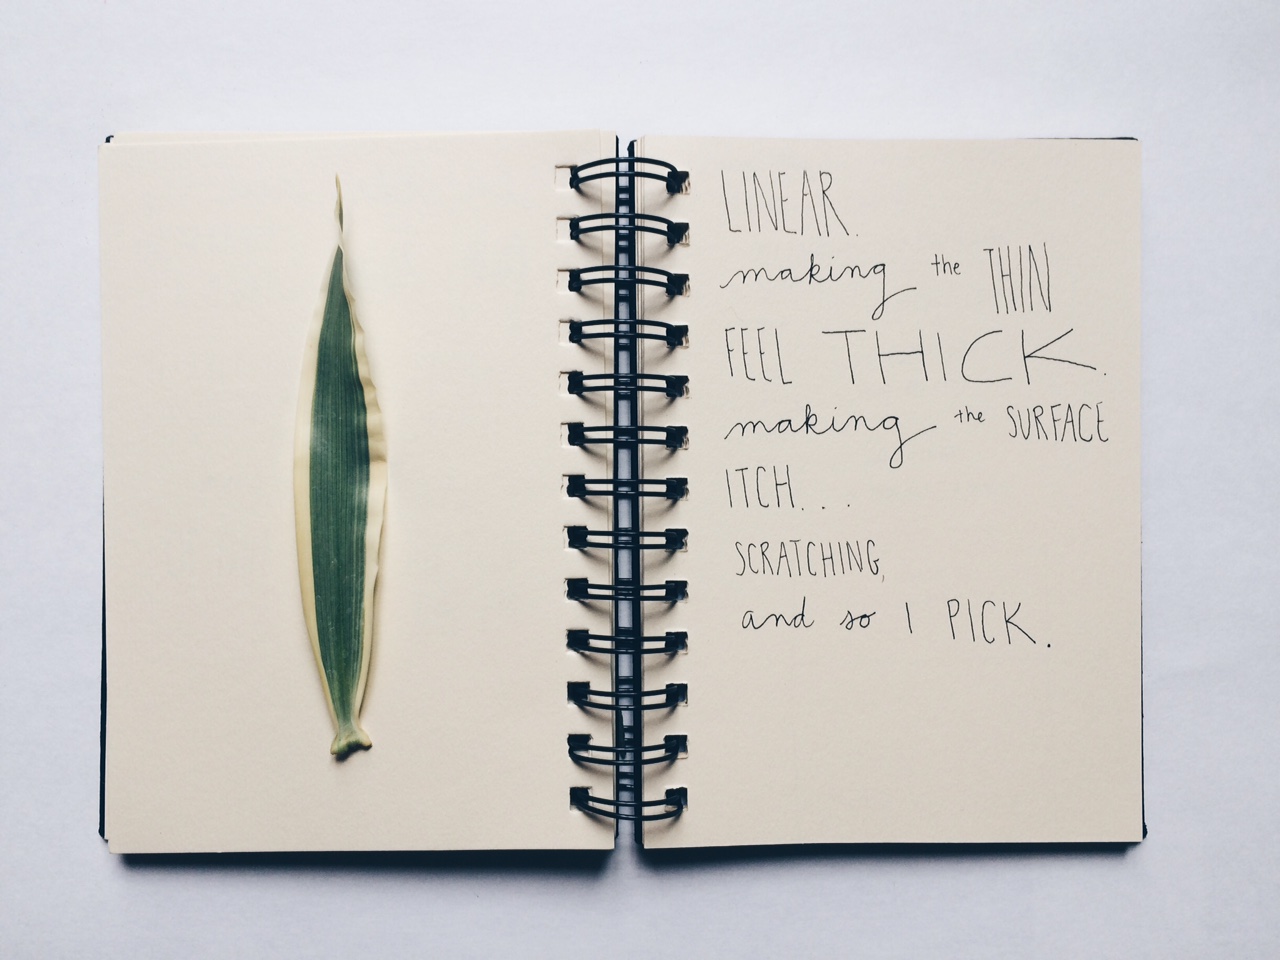 LINEAR.
making the THIN
FEEL THICK.
making the SURFACE
ITCH...
SCRATCHING,
and so I PICK.